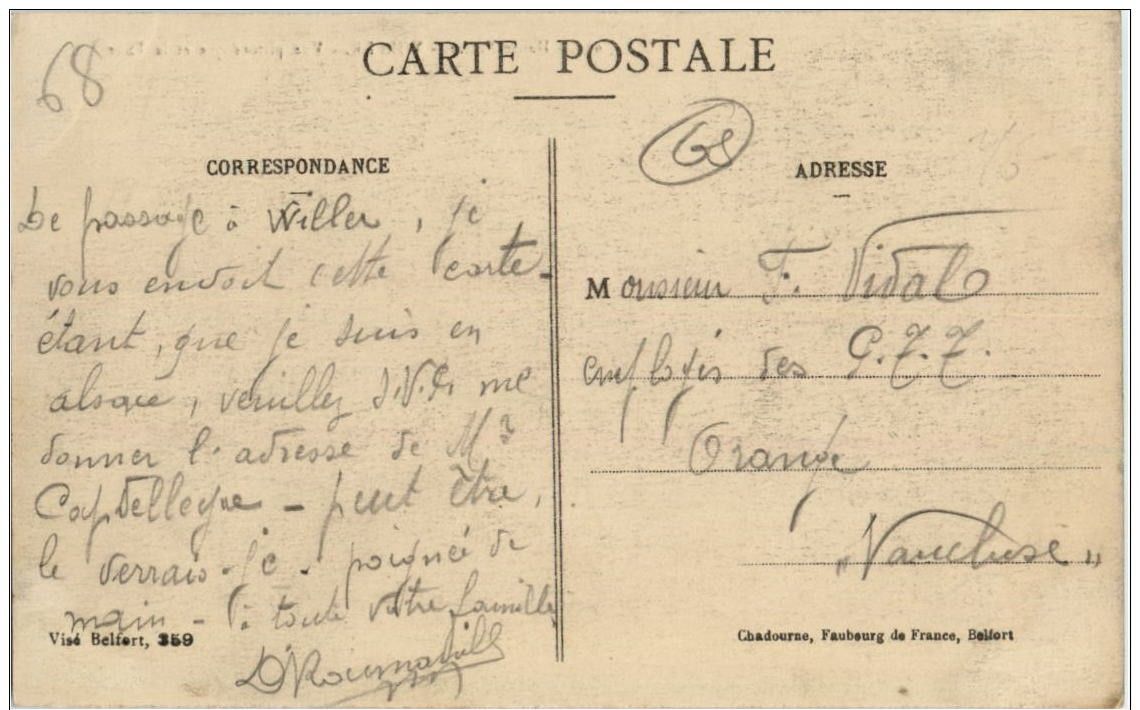 68
CARTE POSTALE
68
CORRESPONDANCE
De passage à Willer, je
vous envoit cette carte -
étant, que je suis en
alsace, veuillez S.V.P. me
donner l'adresse de Mr
Capdellegne - peut être,
le verrais-je - poignée de
main - à toute votre famille
Visé Belfort, 359
ADRESSE
Monsieur F. Vidal
employés des P.T.T.
Orange
"Vaucluse"
Chadourne, Faubourg de France, Belfort